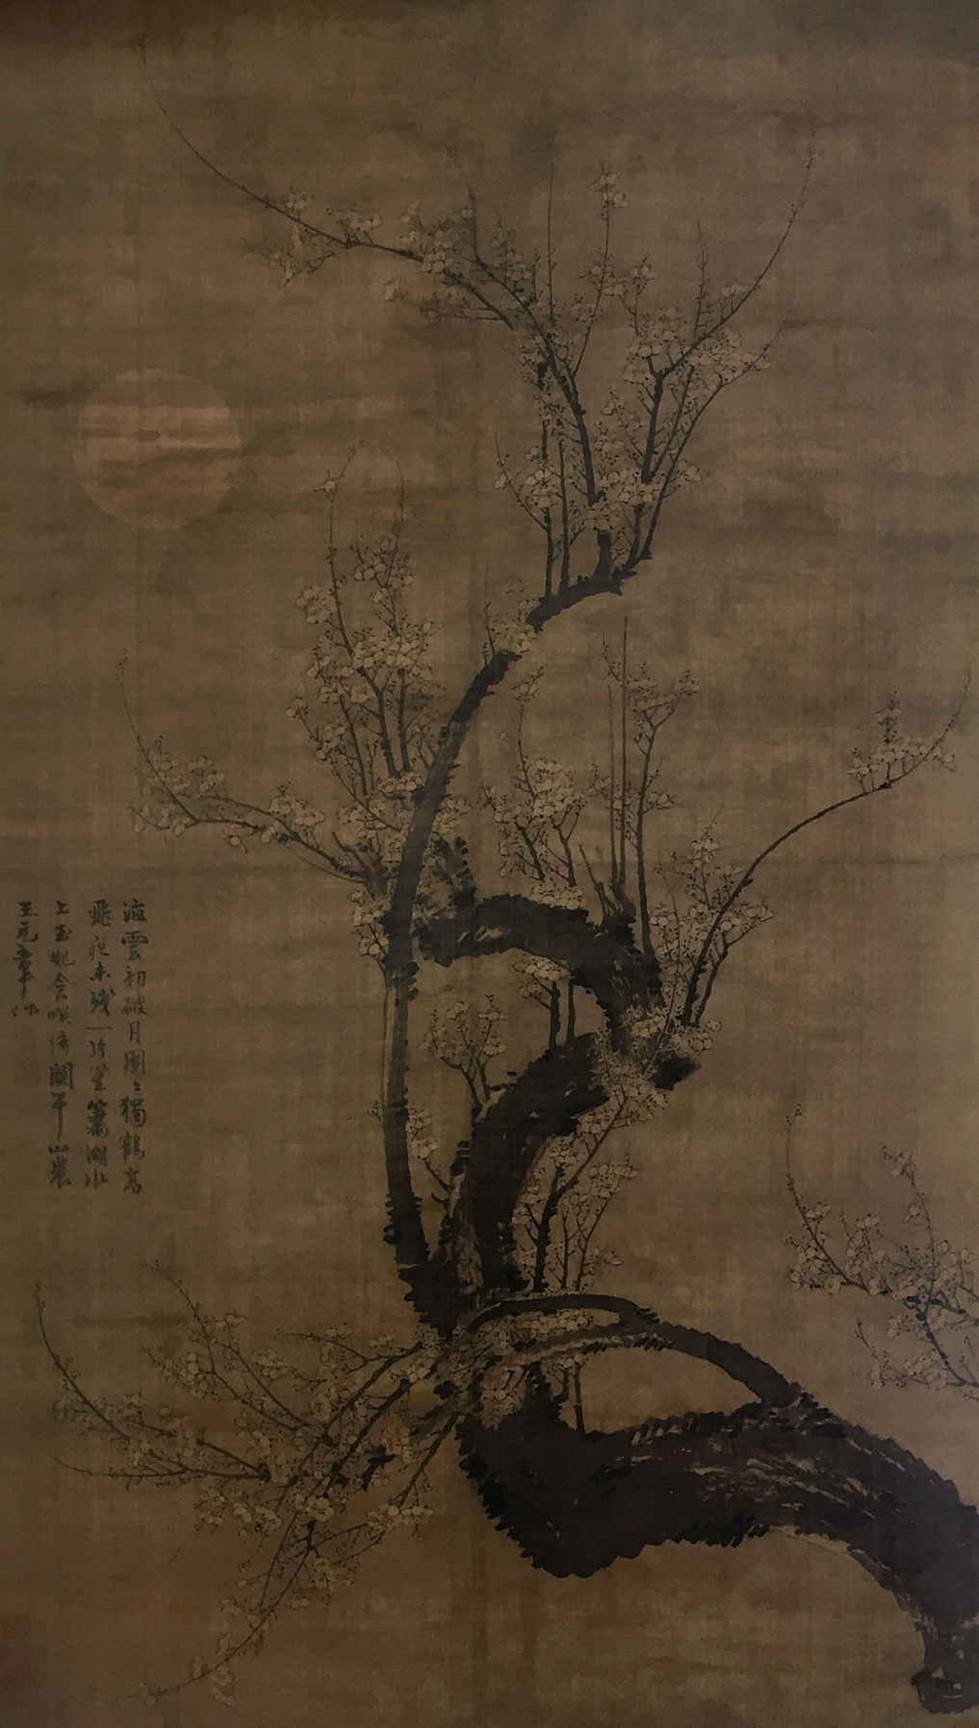 海雲初破月團團獨鶴高
飛夜未殘一片笙簫湖水
上玉妃含嘆倚闌干 山農
王元章作